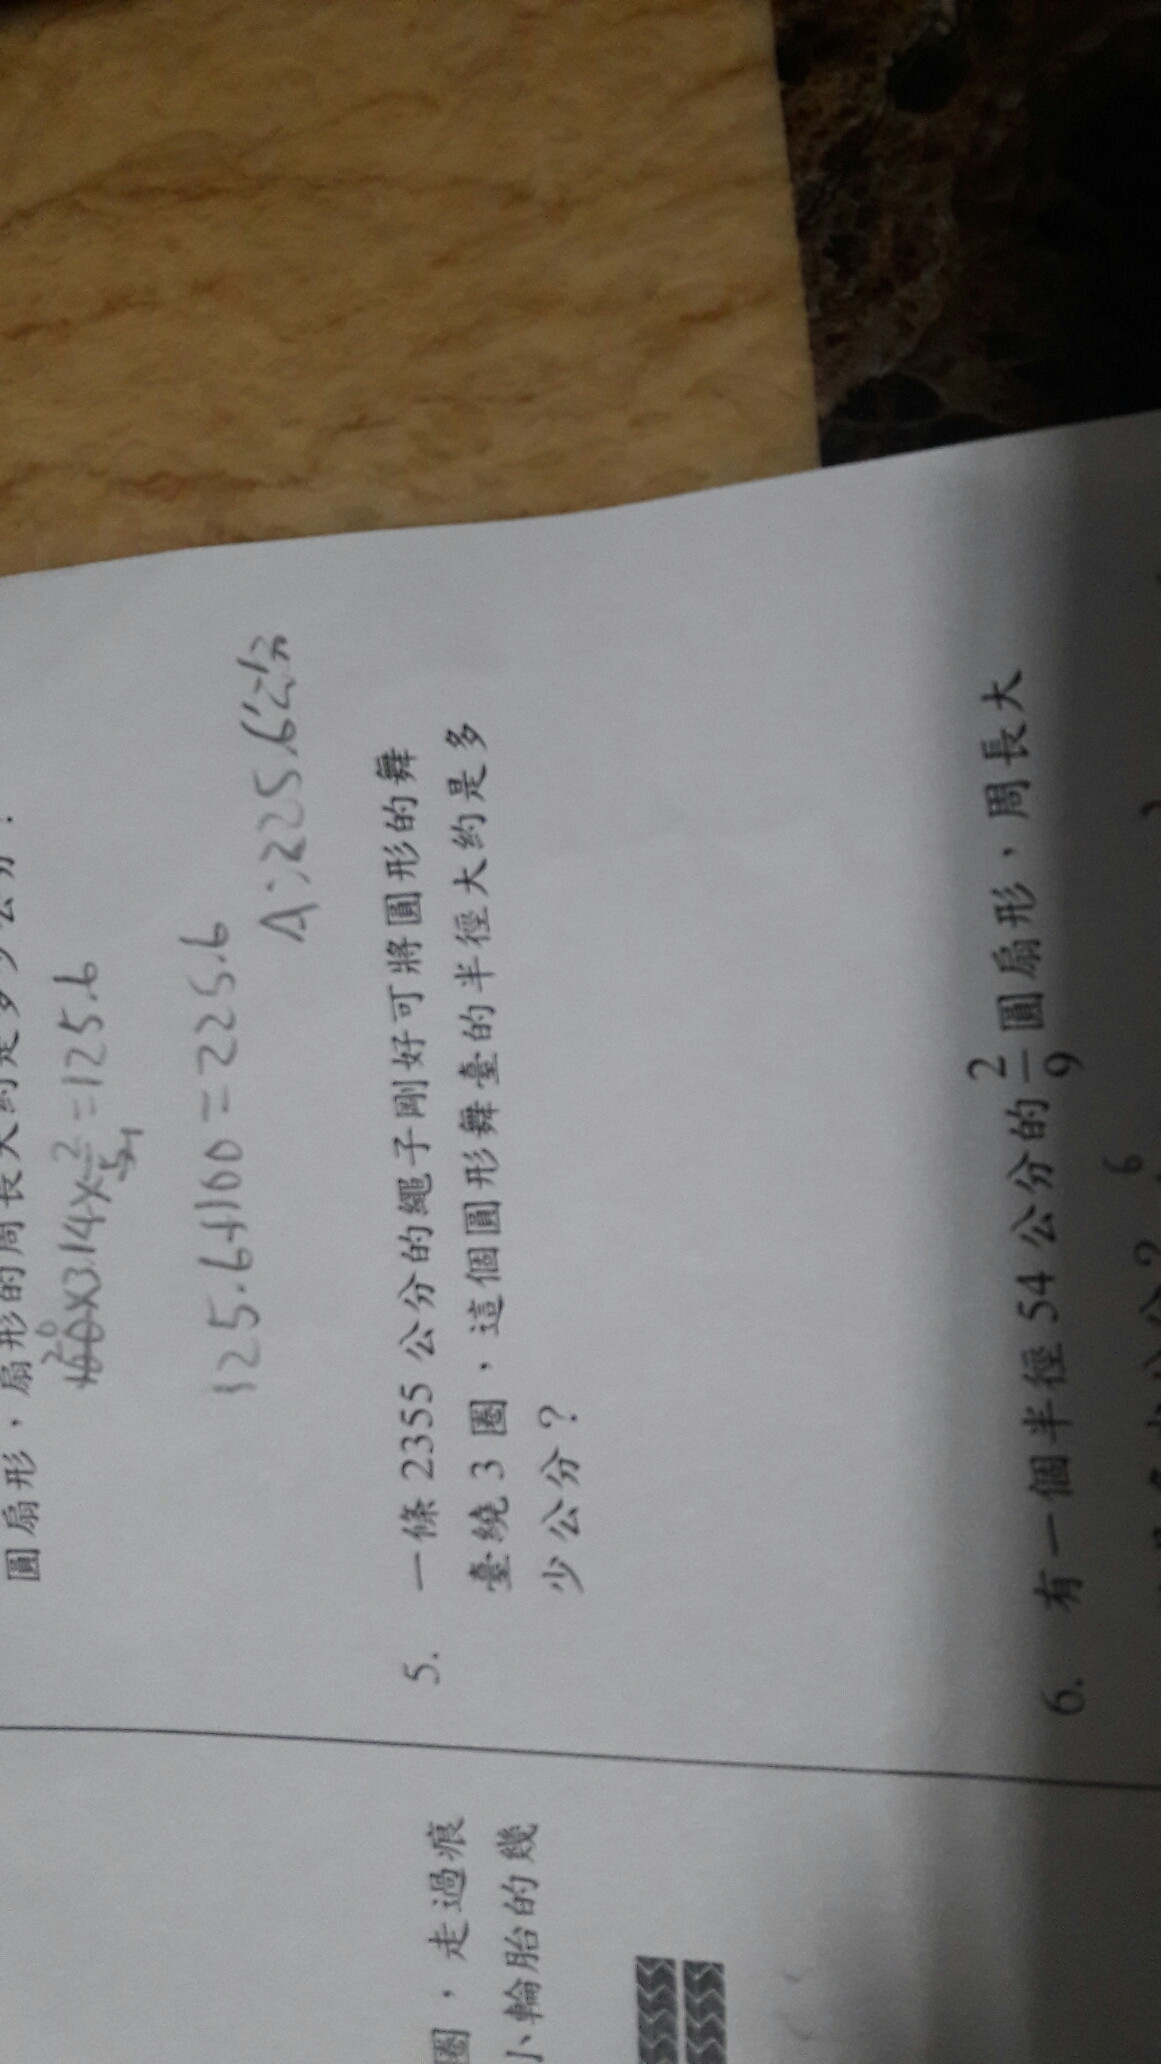 圓扇形，扇形的周長大約是多少公分？
20
100×3.14×2/5=125.6
1
125.6+100=225.6
A:225.6公分
5. 一條 2355 公分的繩子剛好可將圓形的舞
臺繞 3 圈，這個圓形舞臺的半徑大約是多
少公分？
6. 有一個半徑 54 公分的 2/9 圓扇形，周長大
6
圈，走過痕
小輪胎的幾